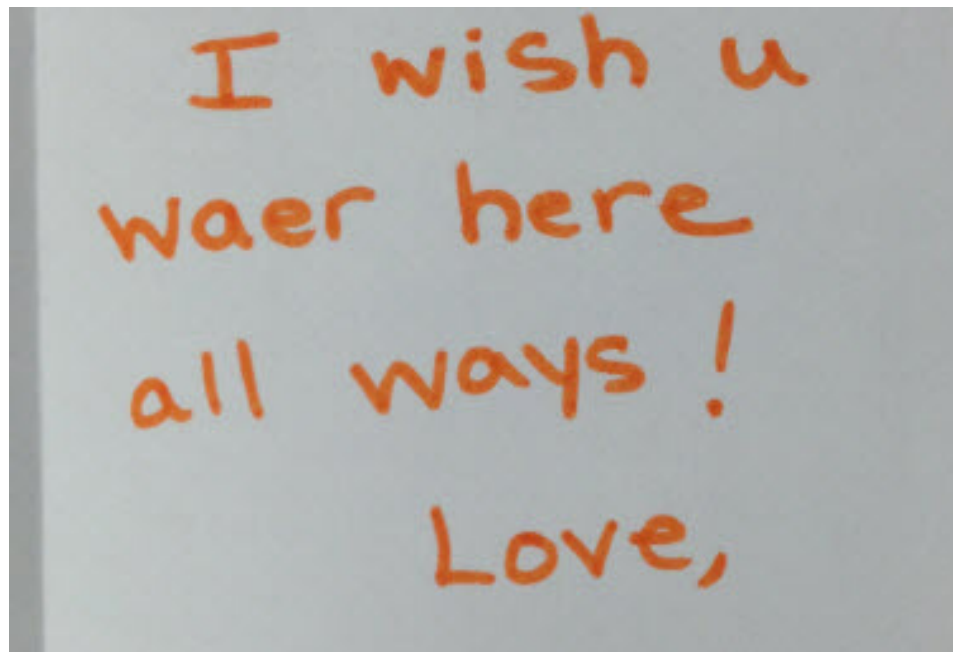 I wish u
waer here
all ways!
Love,